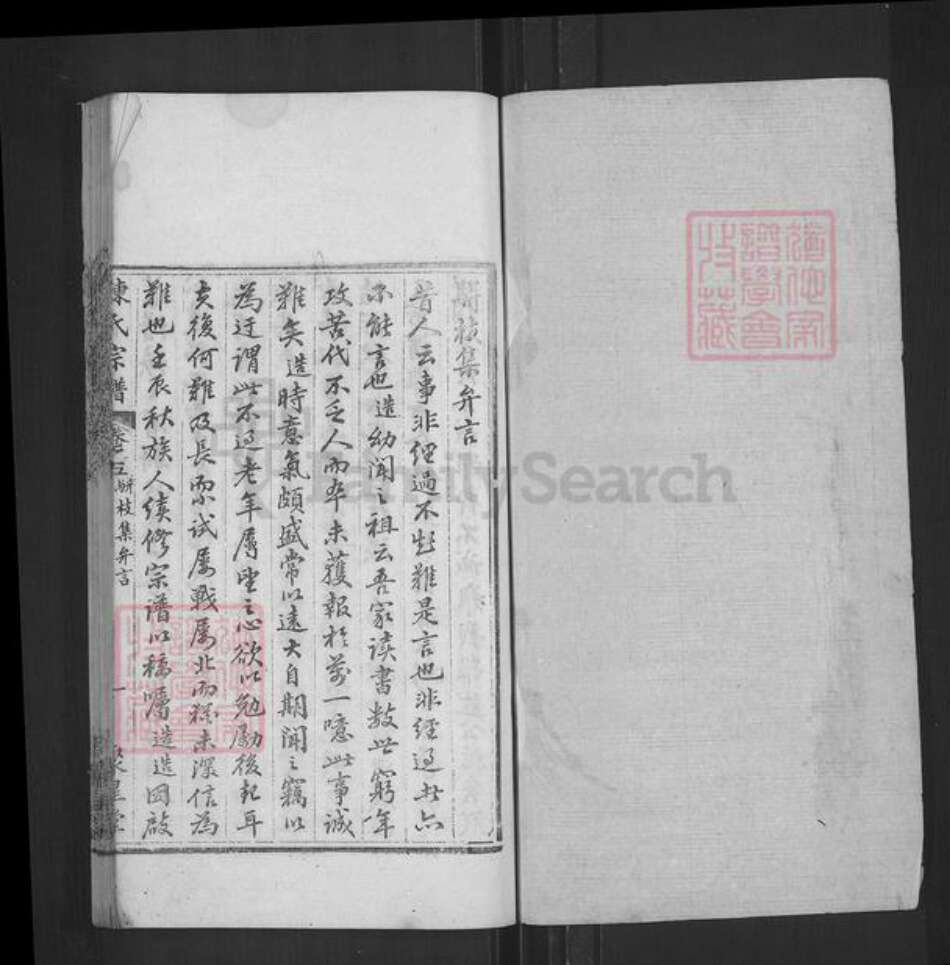 駢枝集弁言
昔人云事非經過不知難是言也非經過者亦
不能言也造幼聞之祖云吾家读書数世窮年
攻苦代不乏人而卒未獲報於萬一噫此事誠
難矣造時意氣頗盛常以遠大自期聞之竊以
為迂謂此不过老年属望之心欲以勉勵後起耳
夫復何難及長而小試屡戰屡北而猶未深信為
難也壬辰秋族人續修宗譜以稿囑造造因啟
陳氏宗譜 卷五 駢枝集弁言 一 聚星堂
FamilySearch